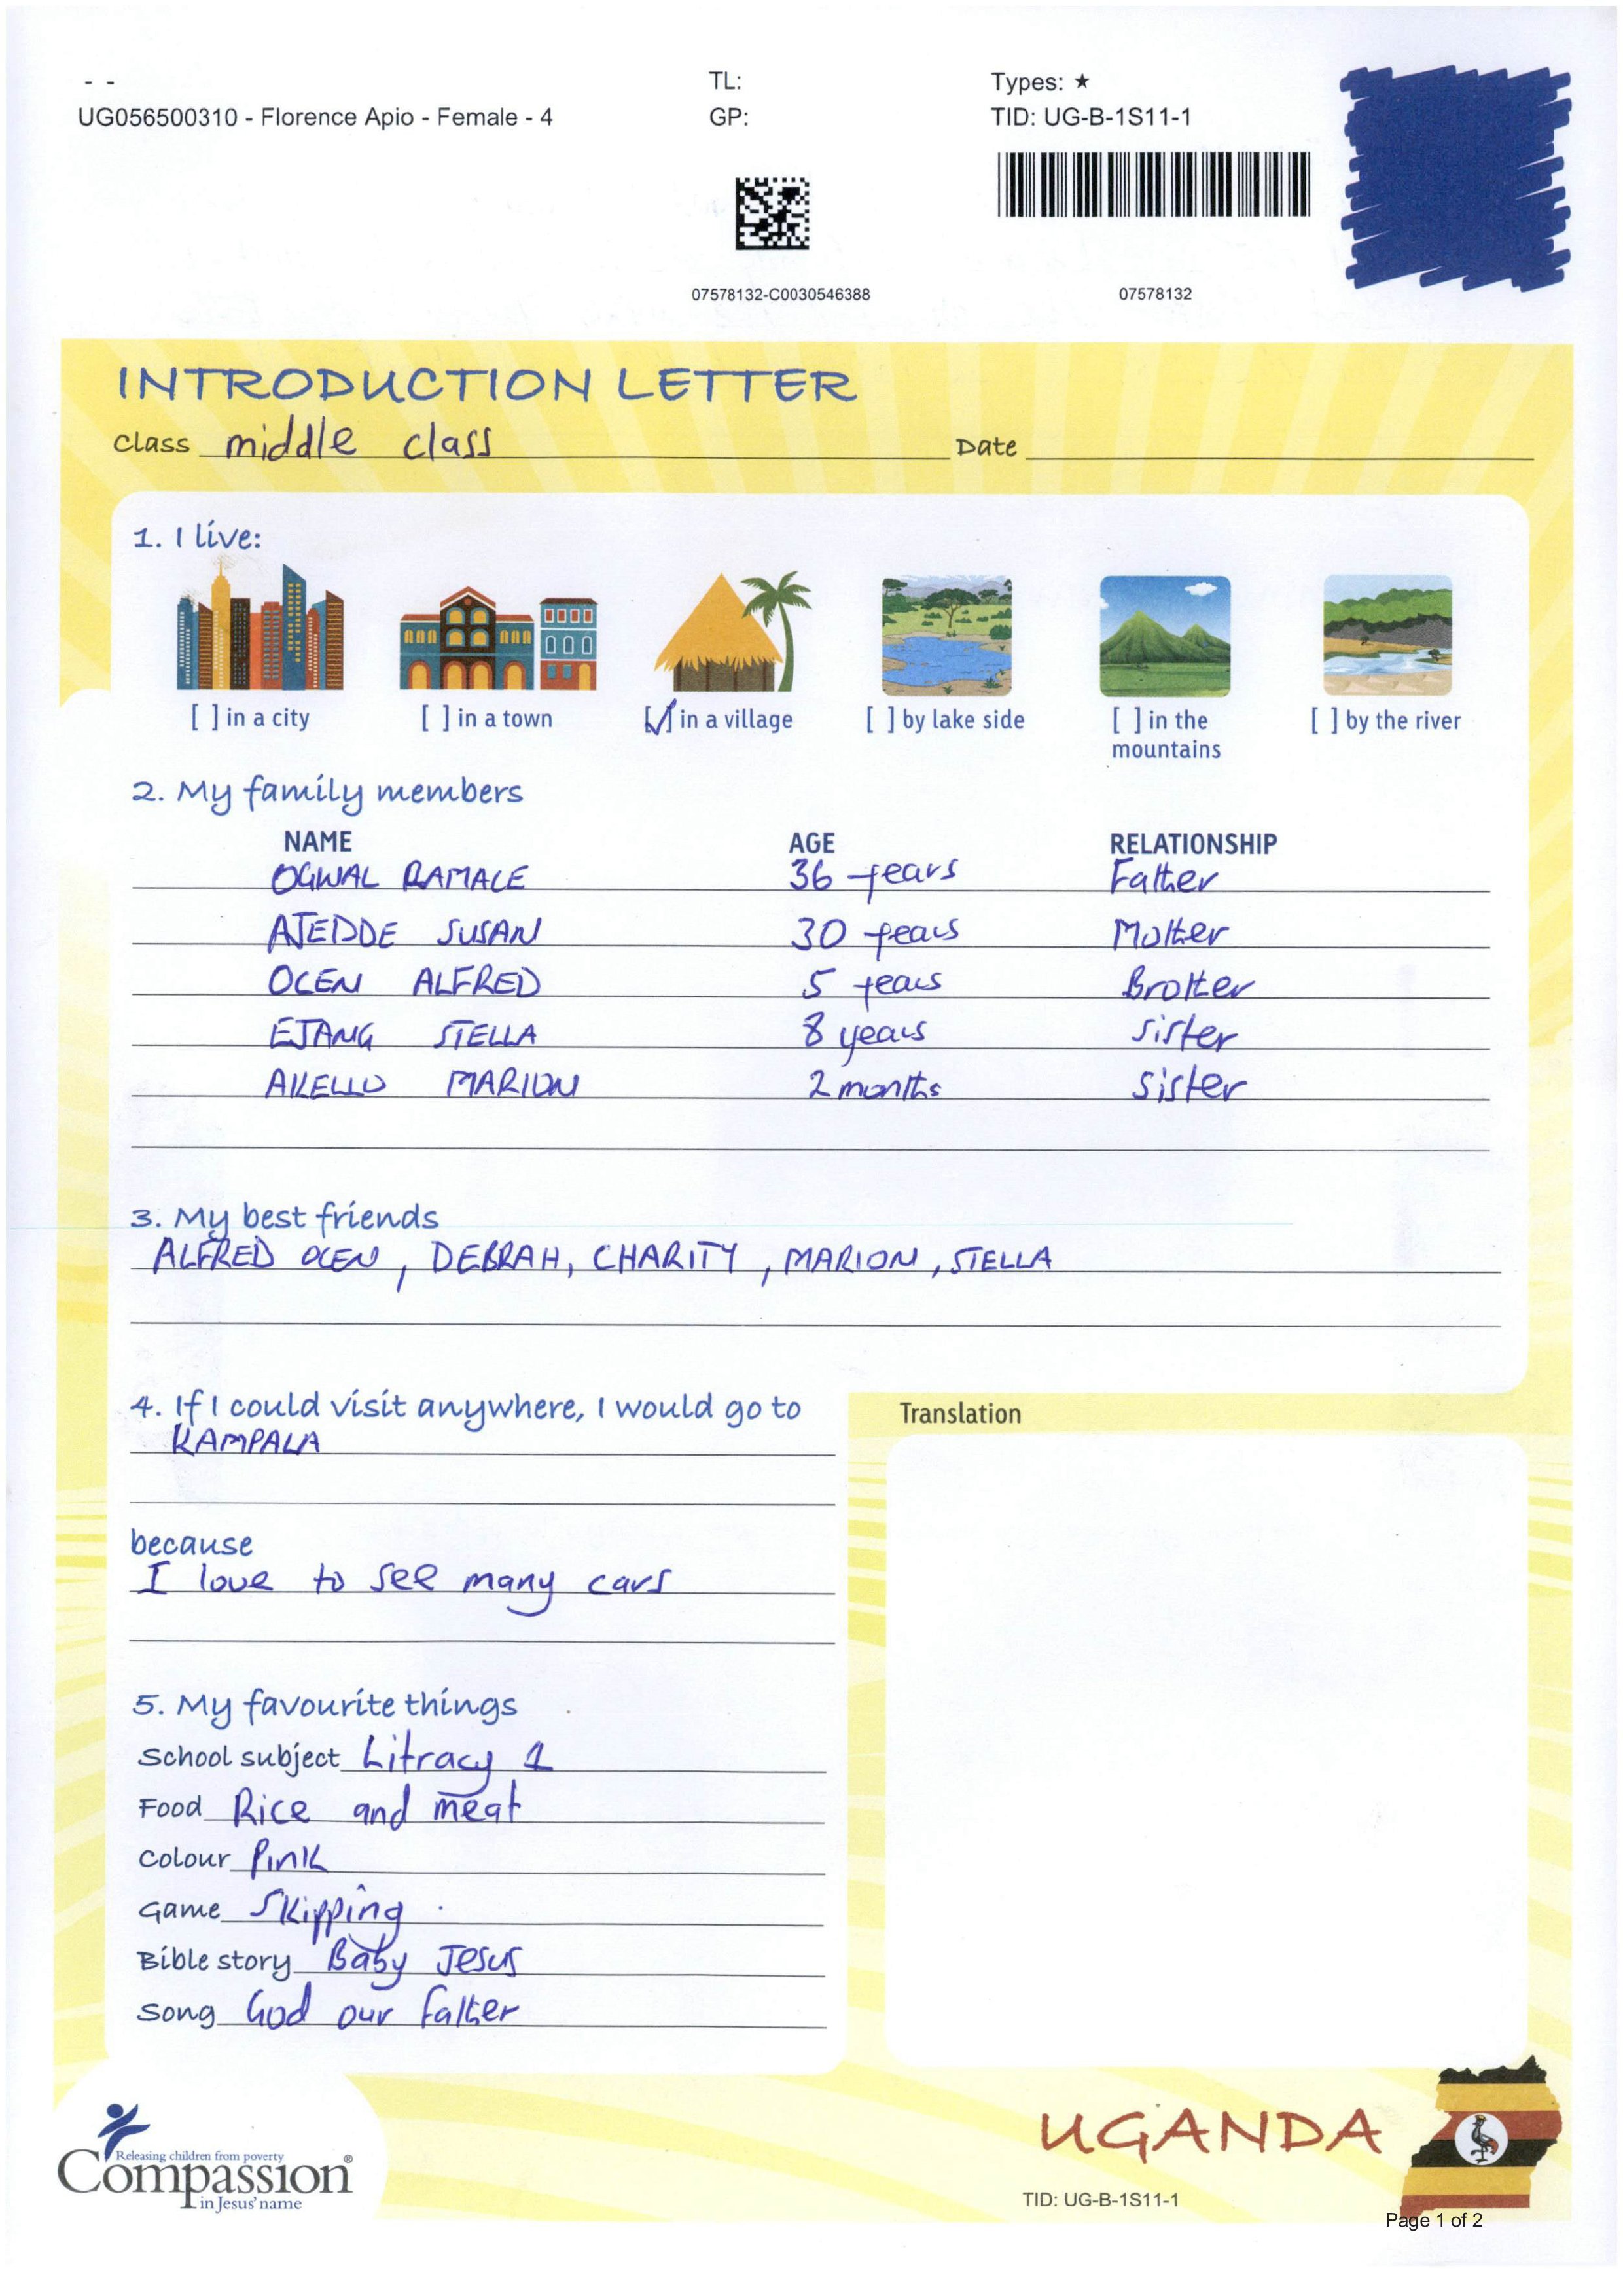 - -
TL:
Types: ★
UG056500310 - Florence Apio - Female - 4
GP:
TID: UG-B-1S11-1
07578132-C0030546388
07578132
INTRODUCTION LETTER
Class middle class Date
1. I live:
[ ] in a city [ ] in a town [✓] in a village [ ] by lake side [ ] in the mountains [ ] by the river
2. My family members
NAME AGE RELATIONSHIP
OGWAL RAMALE 36 years Father
AJEDDE SUSAN 30 years Mother
OCEN ALFRED 5 years Brother
EJANG STELLA 8 years Sister
AKELLO MARION 2 months Sister
3. My best friends
ALFRED OCEN, DEBRAH, CHARITY, MARION, STELLA
4. If I could visit anywhere, I would go to
KAMPALA
because
I love to see many cars
Translation
5. My favourite things
School subject Litracy 1
Food Rice and meat
Colour Pink
Game Skipping
Bible story Baby Jesus
Song God our father
Releasing children from poverty
Compassion®
in Jesus' name
UGANDA
TID: UG-B-1S11-1
Page 1 of 2